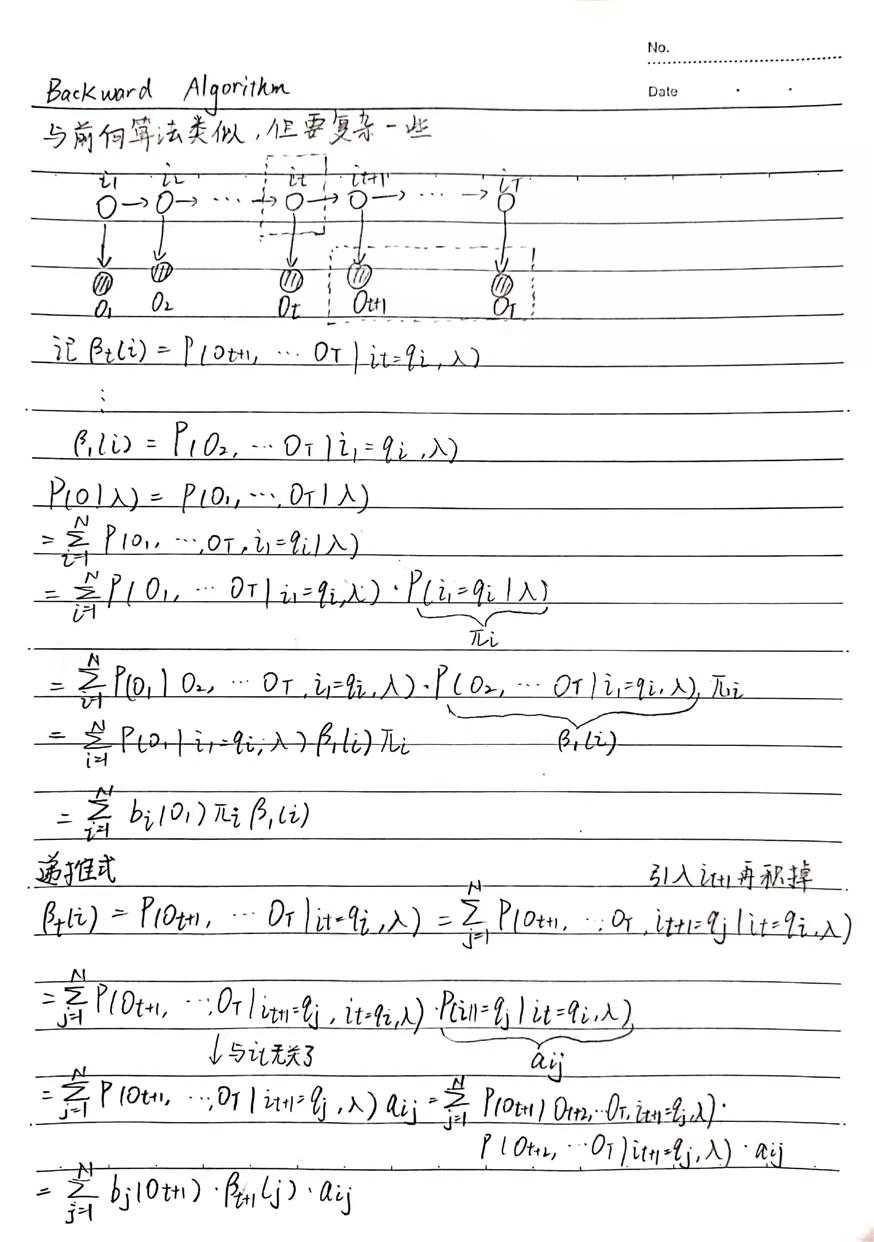 No.
Date
Backward Algorithm
与前向算法类似，但要复杂一些
i₁ i₂ iₜ iₜ₊₁ i_T
→ → ⋯ → → → ⋯ →
O₁ O₂ Oₜ Oₜ₊₁ O_T
记 βₜ(i) = P(Oₜ₊₁, ⋯ O_T | iₜ=qᵢ, λ)
⋮
β₁(i) = P(O₂, ⋯ O_T | i₁=qᵢ, λ)
P(O|λ) = P(O₁, ⋯, O_T|λ)
= ∑_{i=1}^{N} P(O₁, ⋯, O_T, i₁=qᵢ|λ)
= ∑_{i=1}^{N} P(O₁, ⋯ O_T | i₁=qᵢ, λ) · P(i₁=qᵢ|λ)
πᵢ
= ∑_{i=1}^{N} P(O₁ | O₂, ⋯ O_T, i₁=qᵢ, λ) · P(O₂, ⋯ O_T | i₁=qᵢ, λ) πᵢ
= ∑_{i=1}^{N} P(O₁ | i₁=qᵢ, λ) β₁(i) πᵢ β₁(i)
= ∑_{i=1}^{N} bᵢ(O₁) πᵢ β₁(i)
递推式 引入 iₜ₊₁ 再积掉
βₜ(i) = P(Oₜ₊₁, ⋯ O_T | iₜ=qᵢ, λ) = ∑_{j=1}^{N} P(Oₜ₊₁, ⋯, O_T, iₜ₊₁=qⱼ | iₜ=qᵢ, λ)
= ∑_{j=1}^{N} P(Oₜ₊₁, ⋯, O_T | iₜ₊₁=qⱼ, iₜ=qᵢ, λ) · P(iₜ₊₁=qⱼ | iₜ=qᵢ, λ)
↓与iₜ无关了 aᵢⱼ
= ∑_{j=1}^{N} P(Oₜ₊₁, ⋯, O_T | iₜ₊₁=qⱼ, λ) aᵢⱼ = ∑_{j=1}^{N} P(Oₜ₊₁ | Oₜ₊₂, ⋯ O_T, iₜ₊₁=qⱼ, λ) ·
P(Oₜ₊₂, ⋯ O_T | iₜ₊₁=qⱼ, λ) · aᵢⱼ
= ∑_{j=1}^{N} bⱼ(Oₜ₊₁) · βₜ₊₁(j) · aᵢⱼ